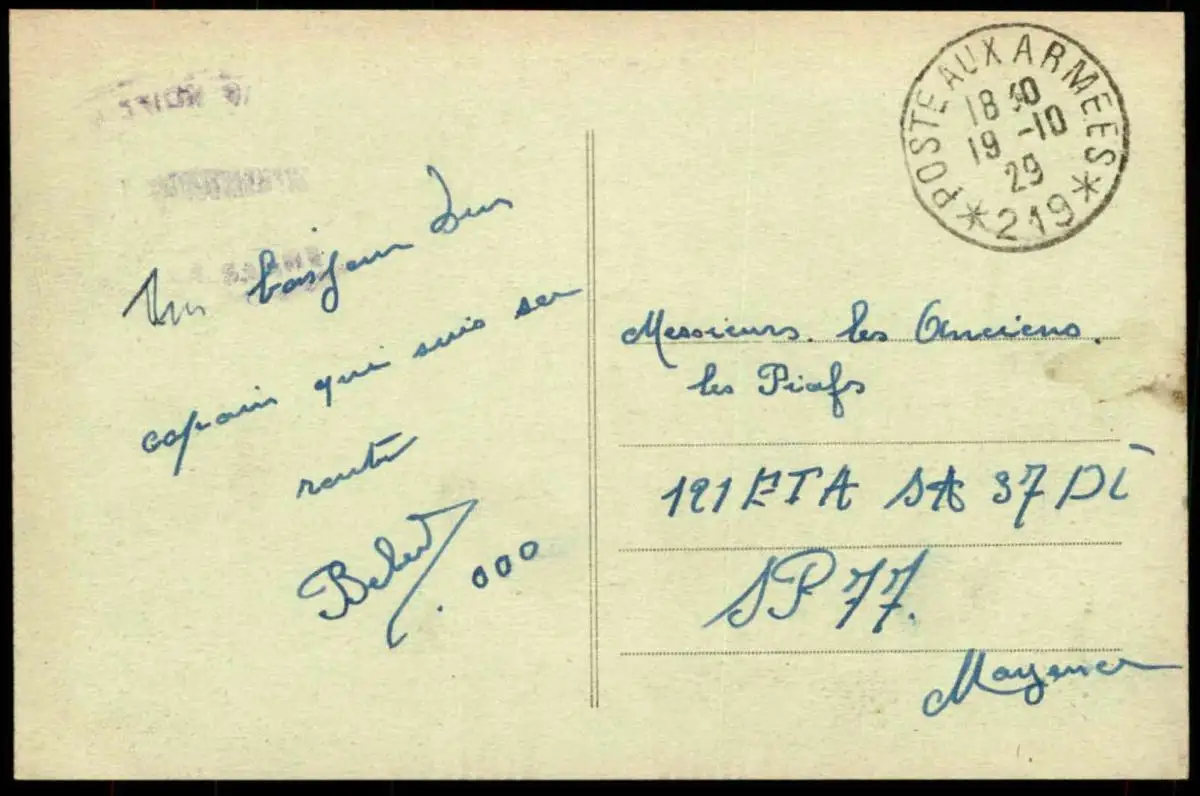 POSTE AUX ARMEES
18 30
19 -10
29
* 219 *
Un bonjour d'un
copain qui suis sa
route
Bebert
. 000
Messieurs. les Anciens.
les Piafs
121 ETA SA 37 DI
SP 77.
Mayence